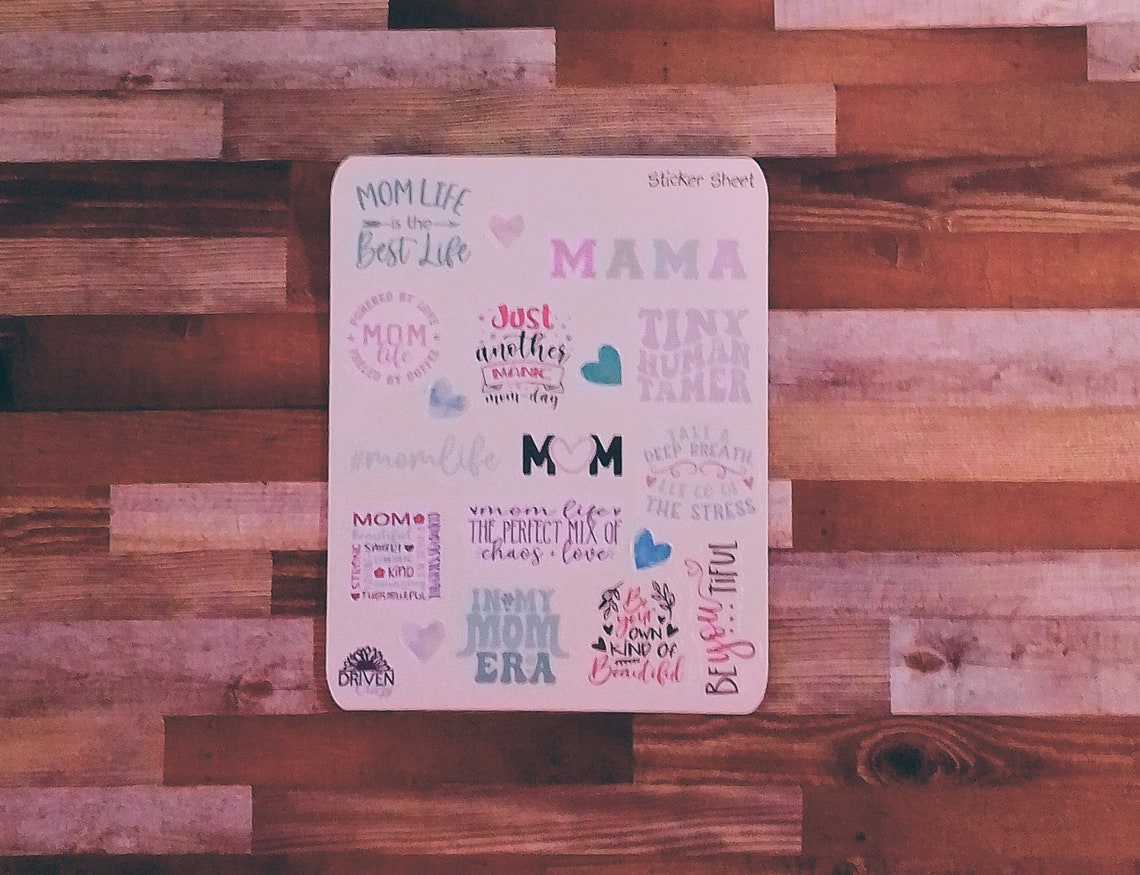 Sticker Sheet
MOM LIFE
is the
Best Life
MAMA
POWERED BY LOVE
MOM
life
FUELED BY COFFEE
Just
another
MANIC
mom-day
TINY
HUMAN
TAMER
#momlife
MOM
TAKE A
DEEP BREATH
LET GO OF
THE STRESS
MOM
beautiful
SMART
STRONG
KIND
mom life
THE PERFECT MIX OF
chaos + love
IN MY
MOM
ERA
Be
your
OWN
KIND OF
Beautiful
BEyou...TIFUL
DRIVEN